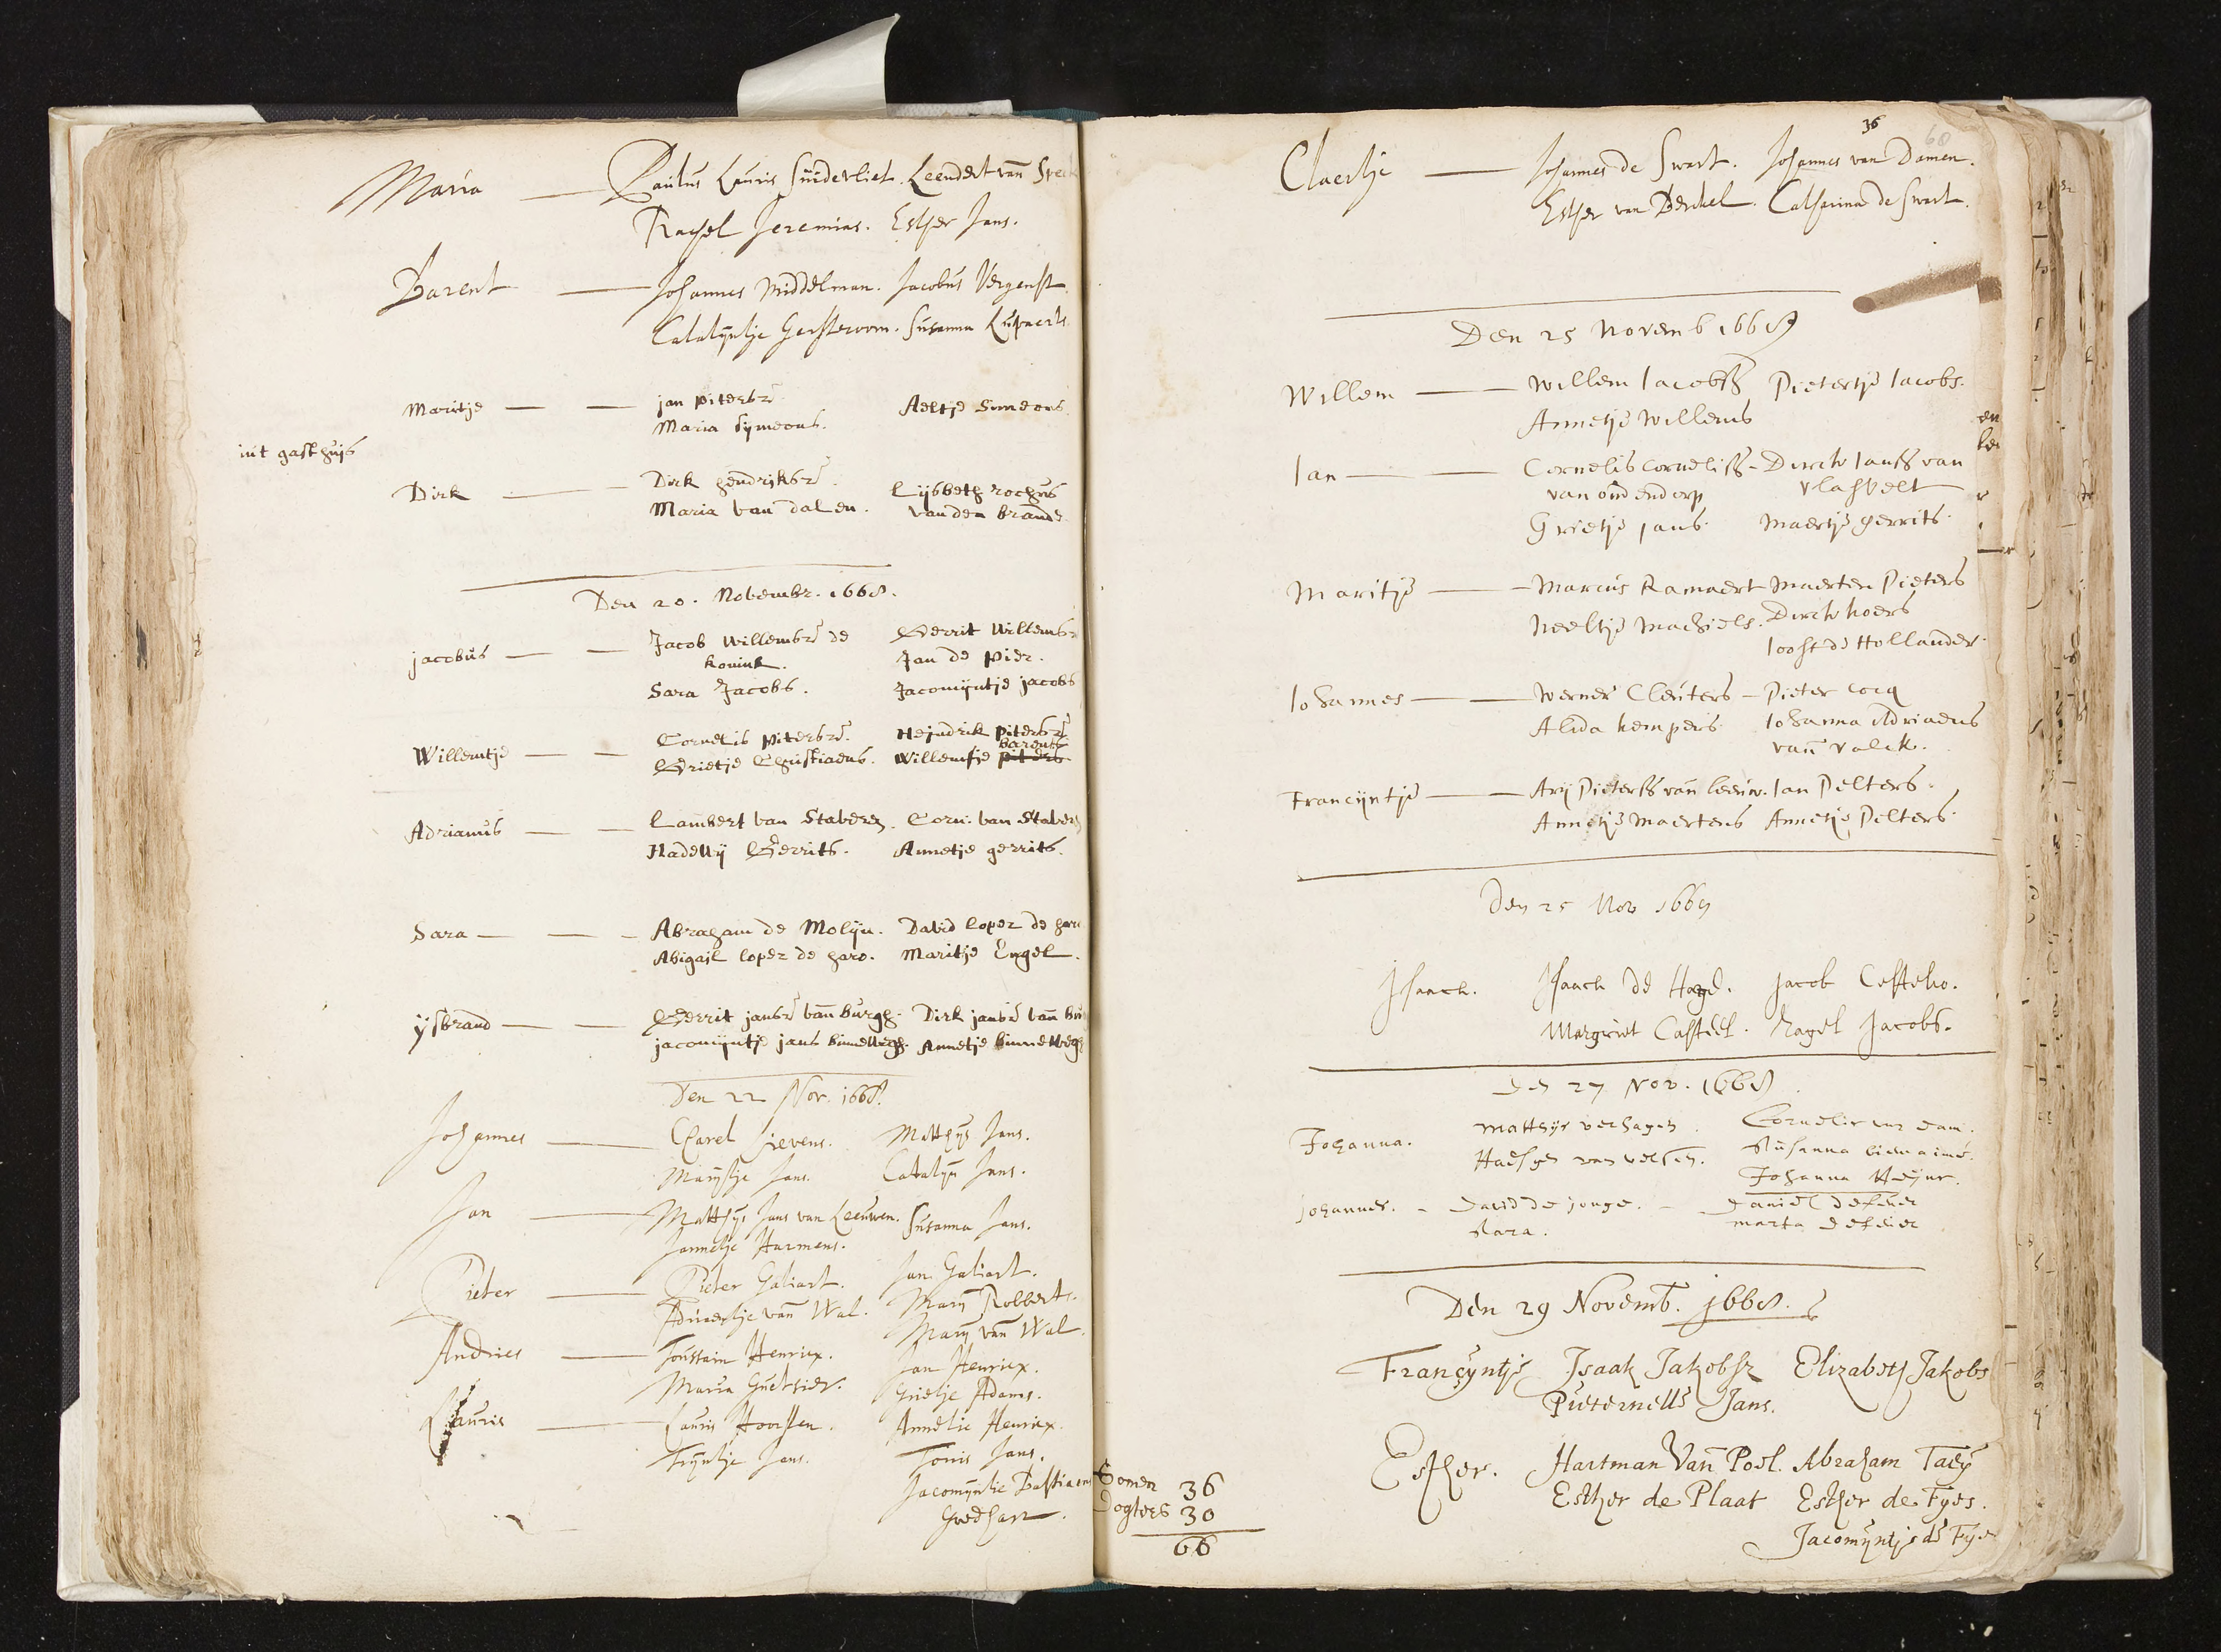 Maria — Paulus Lauris Suidervliet. Leendert van
Rachel Jeremias. Esther Jans.
Barent — Johannes Middelman. Jacobus Vergenst
Catalijntje Gerstecorn. Susanna Luijpaerts.
Maritje — — jan pitersz Aeltje Simeons.
Maria Sijmeons.
int gasthuijs
Dirk — — Dirk hendriksz. Lijsbeth rochus
Maria van dalen. van den brande
Den 20. Novembr. 1668.
jacobus — — Jacob Willemsz de Gerrit Willemsz
konink. Jan de pier.
Sara Jacobs. Jacomijntje jacobs
Willemtje — — Cornelis pitersz. Hejndrik pitersz
barents
Grietje Christiaens. Willemtje piters
Adrianus — — Lambert van Staveren. Corn: van Staveren
Hadewij Gerrits. Annetje gerrits.
Sara — — — Abraham de Molijn. David lopez de haro
Abigail lopez de haro. Maritje Engel.
ijsbrand — — Gerrit jansz van Burgh. Dirk jansz van
jacomijntje jans binnewegh. Annetje binnewegh
Den 22 Nov. 1668.
Johannes — Charel Lievens. Matthijs Jans.
Marijtje Jans. Catalijn Jans.
Jan — Matthijs Jans van Leeuwen. Susanna Jans.
Jannetje Harmens.
Pieter — Pieter Galiart. Jan Galiart.
Adriaentje van Wal. Marij Robberts.
Marij van Wal
Andries — Toussain Henrix. Jan Henrix.
Maria Grietje Adams.
Lauris — Lauris Annetie Henrix
Trijntje Jans. Tonis Jans.
Jacomijntie Bastiaens
Sonen 36
dogters 30
66
36
60
Claertje — Johannes de Swart. Johannes van Damen.
Esther van Berckel. Catharina de Swart.
Den 25 Novemb 1668
Willem — Willem Jacobsz Pietertje Jacobs.
Annetje Willems
Jan — Cornelis Cornelisz - Dirck Jansz van
van oudendorp vlasvelt
Grietje Jans. Maertje gerrits.
Maritje — Marcus Ramaert Maerten Pieters
Neeltje Machiels. Dirck koers
Joost de Hollander.
Johannes — Werner Cleuters - Pieter Cocq
Alida kempers. Johanna Adriaens
van valck.
Francijntje — Arij Pietersz van leeuw. Jan Pelters.
Annetje Maertens Annetje Pelters.
Den 25 Nov 1668
Isaack. Isaack de Haze. Jacob
Margriet Casteel. Ragel Jacobs.
Den 27 Nov. 1668
Johanna. Matthijs verhagen. Cornelis van dam.
van velsen. Susanna
Johanna
johannes. - david de jonge. - daniel
Sara. marta
Den 29 Novemb. 1668.
Francyntje Isaak Jakobsz Elizabeth Jakobs
Pieternelle Jans.
Esther. Hartman Van Poel. Abraham Taey
Esther de Plaat Esther de Fyes.
Jacomyntje de Fye